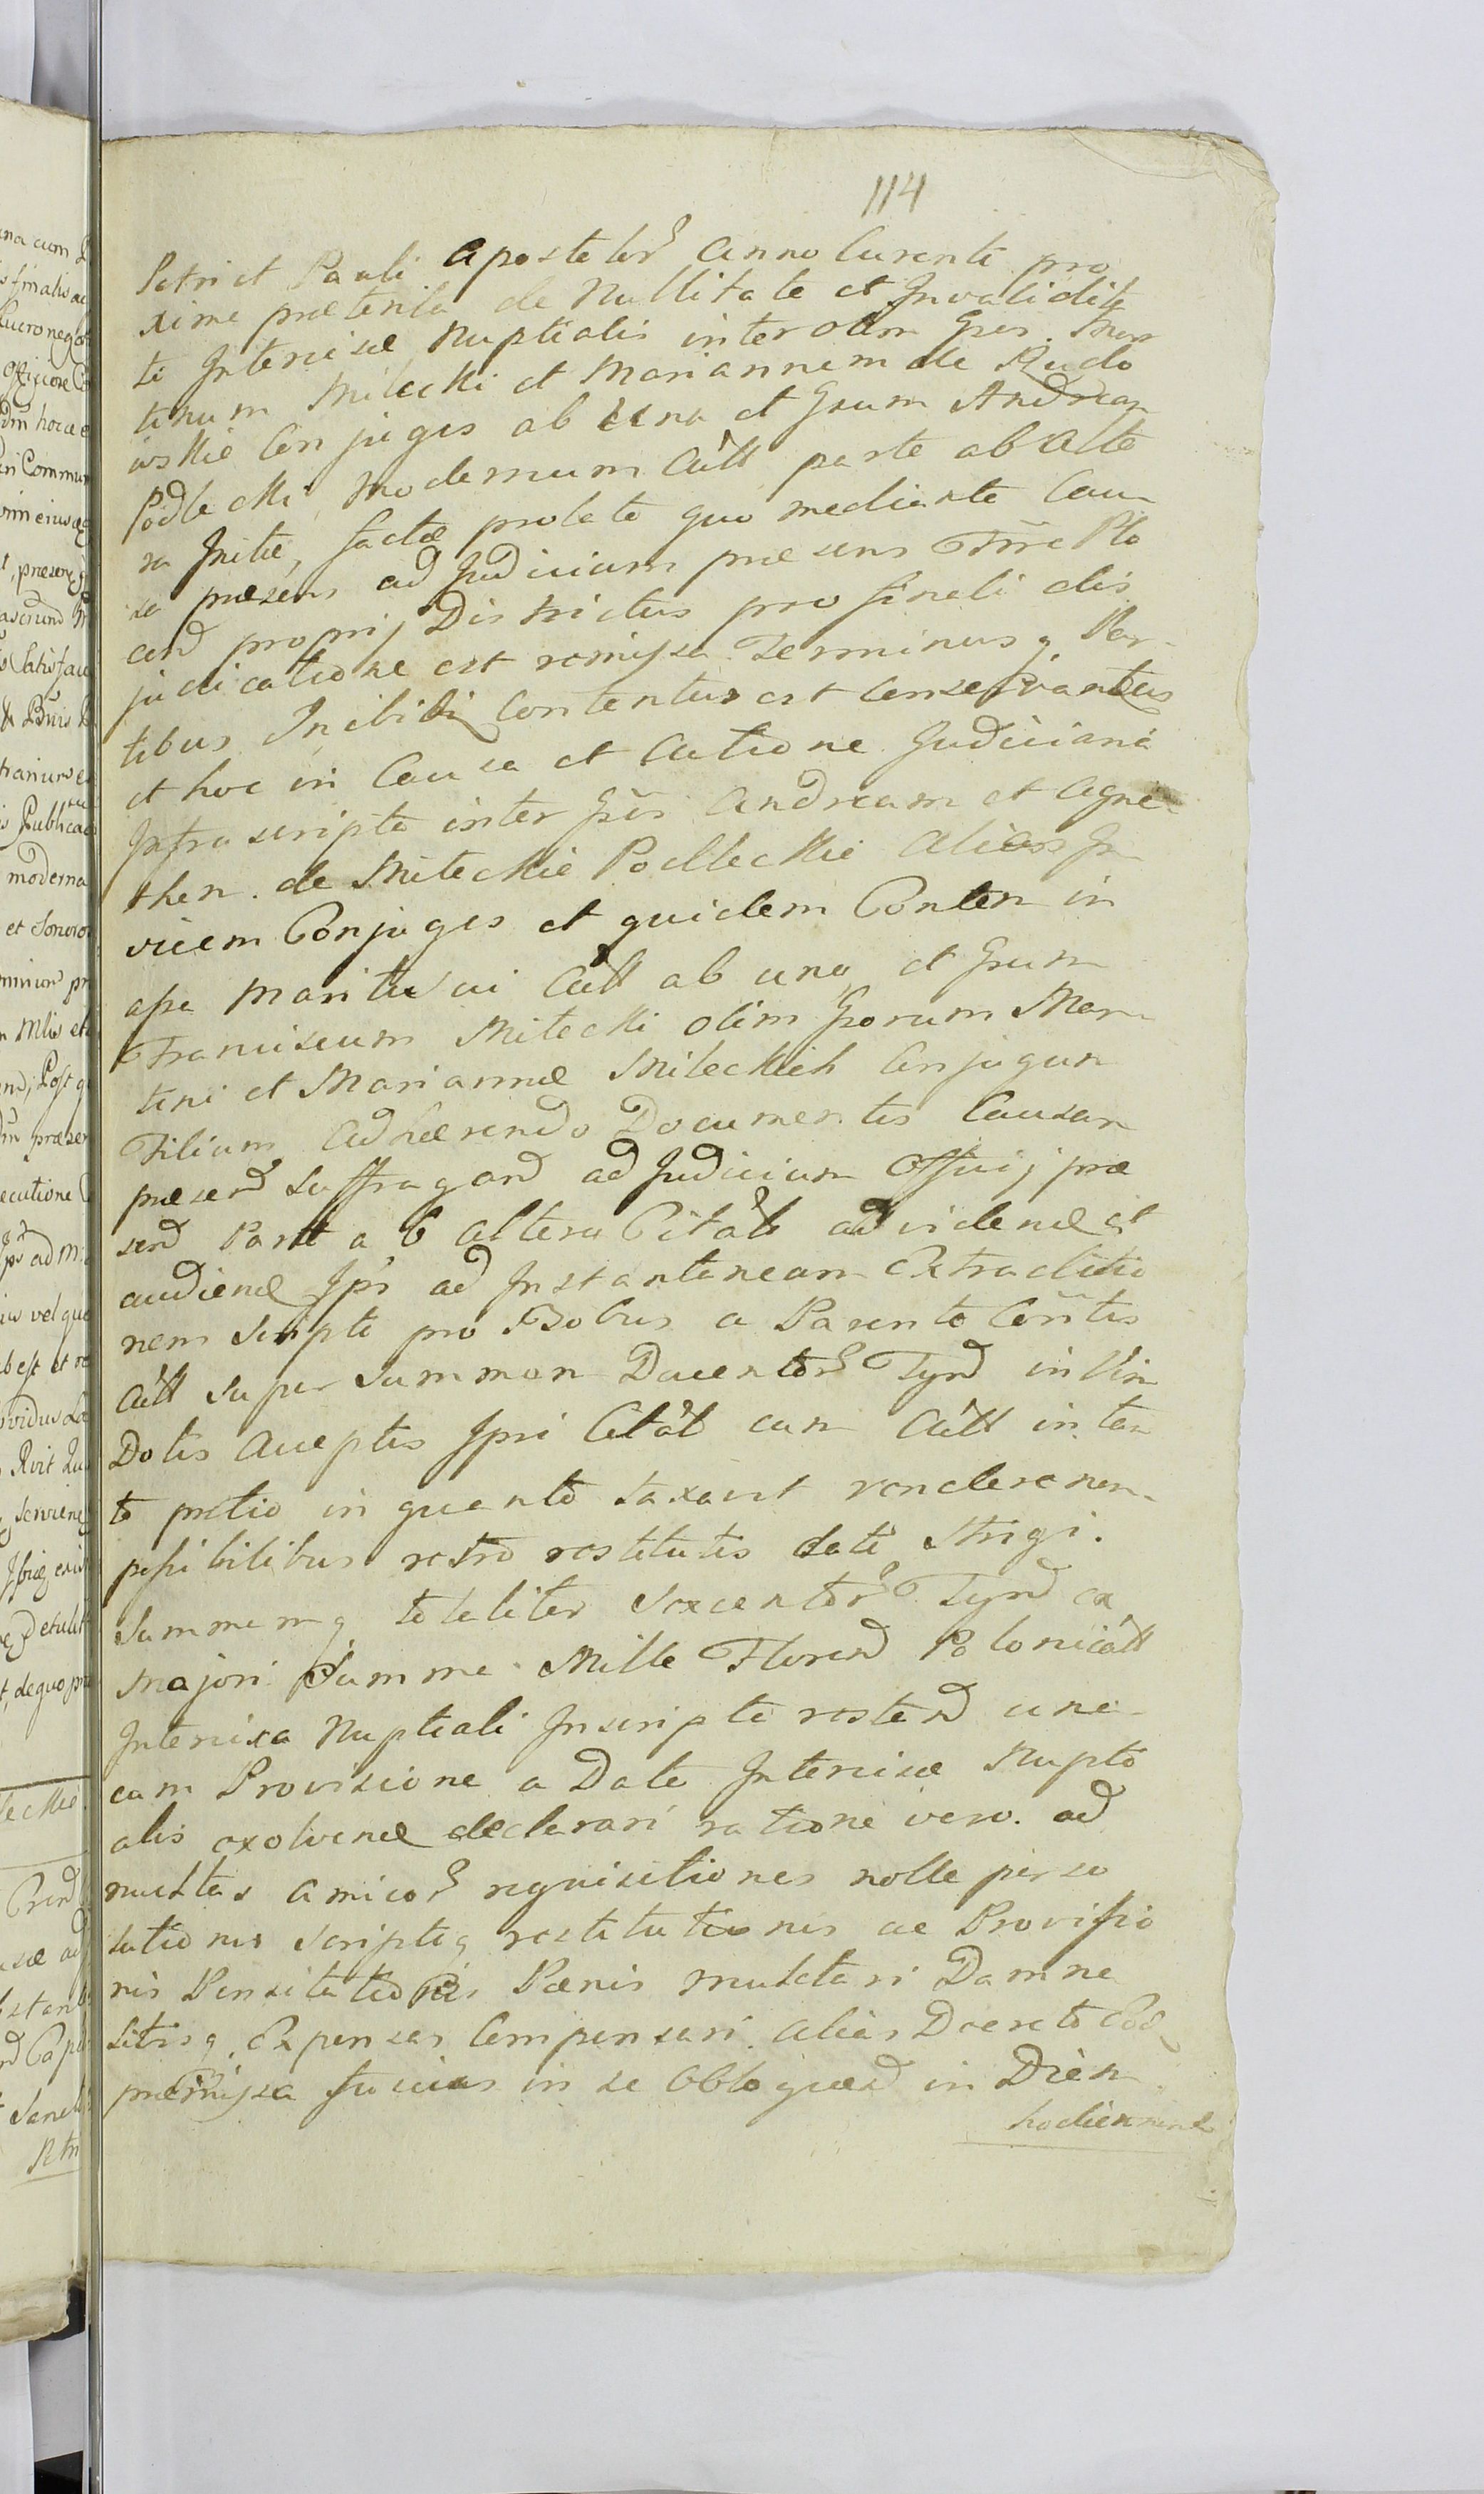 114
Petri et Pauli Apostolor Anno Curente pro
xime preterita de Nullitate et Invalidita
te Intercisæ Nuptialis inter olim Gres. Mar
tinum Mileckí et Mariannem de Rudo
wskie Conjuges ab Una et Grum Andream
Podleckí Modernum Actt parte ab Alte
ra Initæ, factæ prolato quo mediante Cau
sa præsens ad Judicium præsens Trre Plo
cen proprij Districtus pro finali dis
judicatione est remissa Terminusq Par
tibus Inibibi Contentus est Conservantus
et hoc in Causa et Actione Judiciaria
Infrascripta inter Grs Andream et Agne
then. de Mileckie Podleckie Alias In
vicem Conjuges et quidem Conten in
assa Maritu sui Actt ab una, et Grum
Franciscum Mileckí olim Grorum Mar
tini et Mariannæ Mileckich Conjugum
Filium Adhærendo Documentis Causam
præsend suffragand ad Judicium Officij præ
send Part a b altera Citatt ad videnɖ et
audienɖ Ipsi ad Instantaneam Extraditio
nem Scripti pro Bobus a Parente Contis
Actt super Summam Ducentor Tynd in Vim
Dotis Acceptis Ipsi Citatt cum Actt in tan
to pretio in quanto taxavit vendere non
possibilibus retro restitutis dati Strigi.
Summamq totaliter Sexcentor Tynd ex
Majori Summa Mille Floren Polonicatt
Intercisa Nuptiali Inscripta restend una
cum Provisione a Data Intercisæ Nupti
alis exolvenɖ declarari ratione vero. ad
multas Amicor requisitiones nolle perso
lutionis Scriptiq restitutionis ac Provisio
nis Pensitationis Pænis mulctari Damna
Litisq. Expensas Compensari. Alias Decreto Eod
præmissa fusius in se Obloquend in Diem
hodiernam